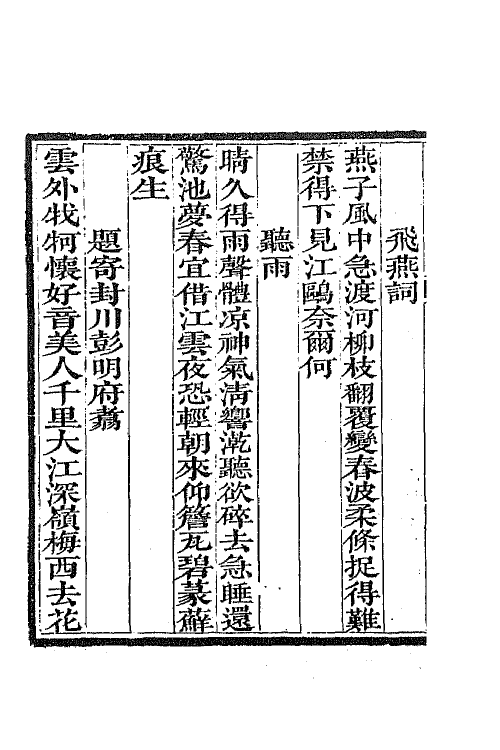 飛燕詞
燕子風中急渡河柳枝翻覆變春波柔條捉得難
禁得下見江鷗奈爾何
聽雨
晴久得雨聲體凉神氣清響乾聽欲碎去急睡還
驚池夢春宜借江雲夜恐輕朝來仰簷瓦碧篆蘚
痕生
題寄封川彭明府翥
雲外牂牁懷好音美人千里大江深嶺梅西去花